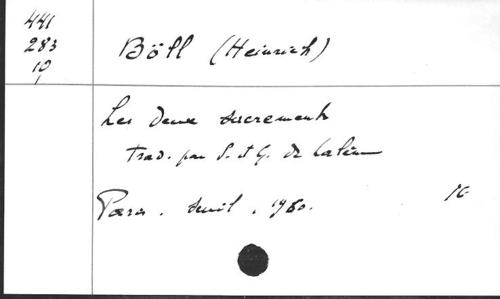 441
283
10
Böll (Heinrich)
Les deux sacrements
Trad. par S. et G. de Lalène
Paris. Seuil. 1960.
16